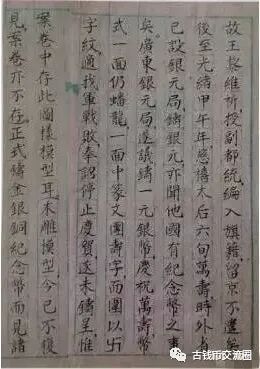 故王黎維祈授副都統編入旗籍留京不
後至光緒甲午年慈禧太后六旬萬壽時外省
已設銀元局鑄銀元亦聞他國有紀念幣之事
矣廣東銀元局遂議鑄一元銀幣慶祝萬壽幣
式一面仍蟠龍一面中篆文團壽字而圍以卐
字紋適我軍戰敗奉詔停止慶賀遂未鑄呈惟
案卷中存此圖樣模型耳未雕模型今已不復
見案卷亦不存正式鑄金銀銅紀念幣而見諸
古钱币交流圈